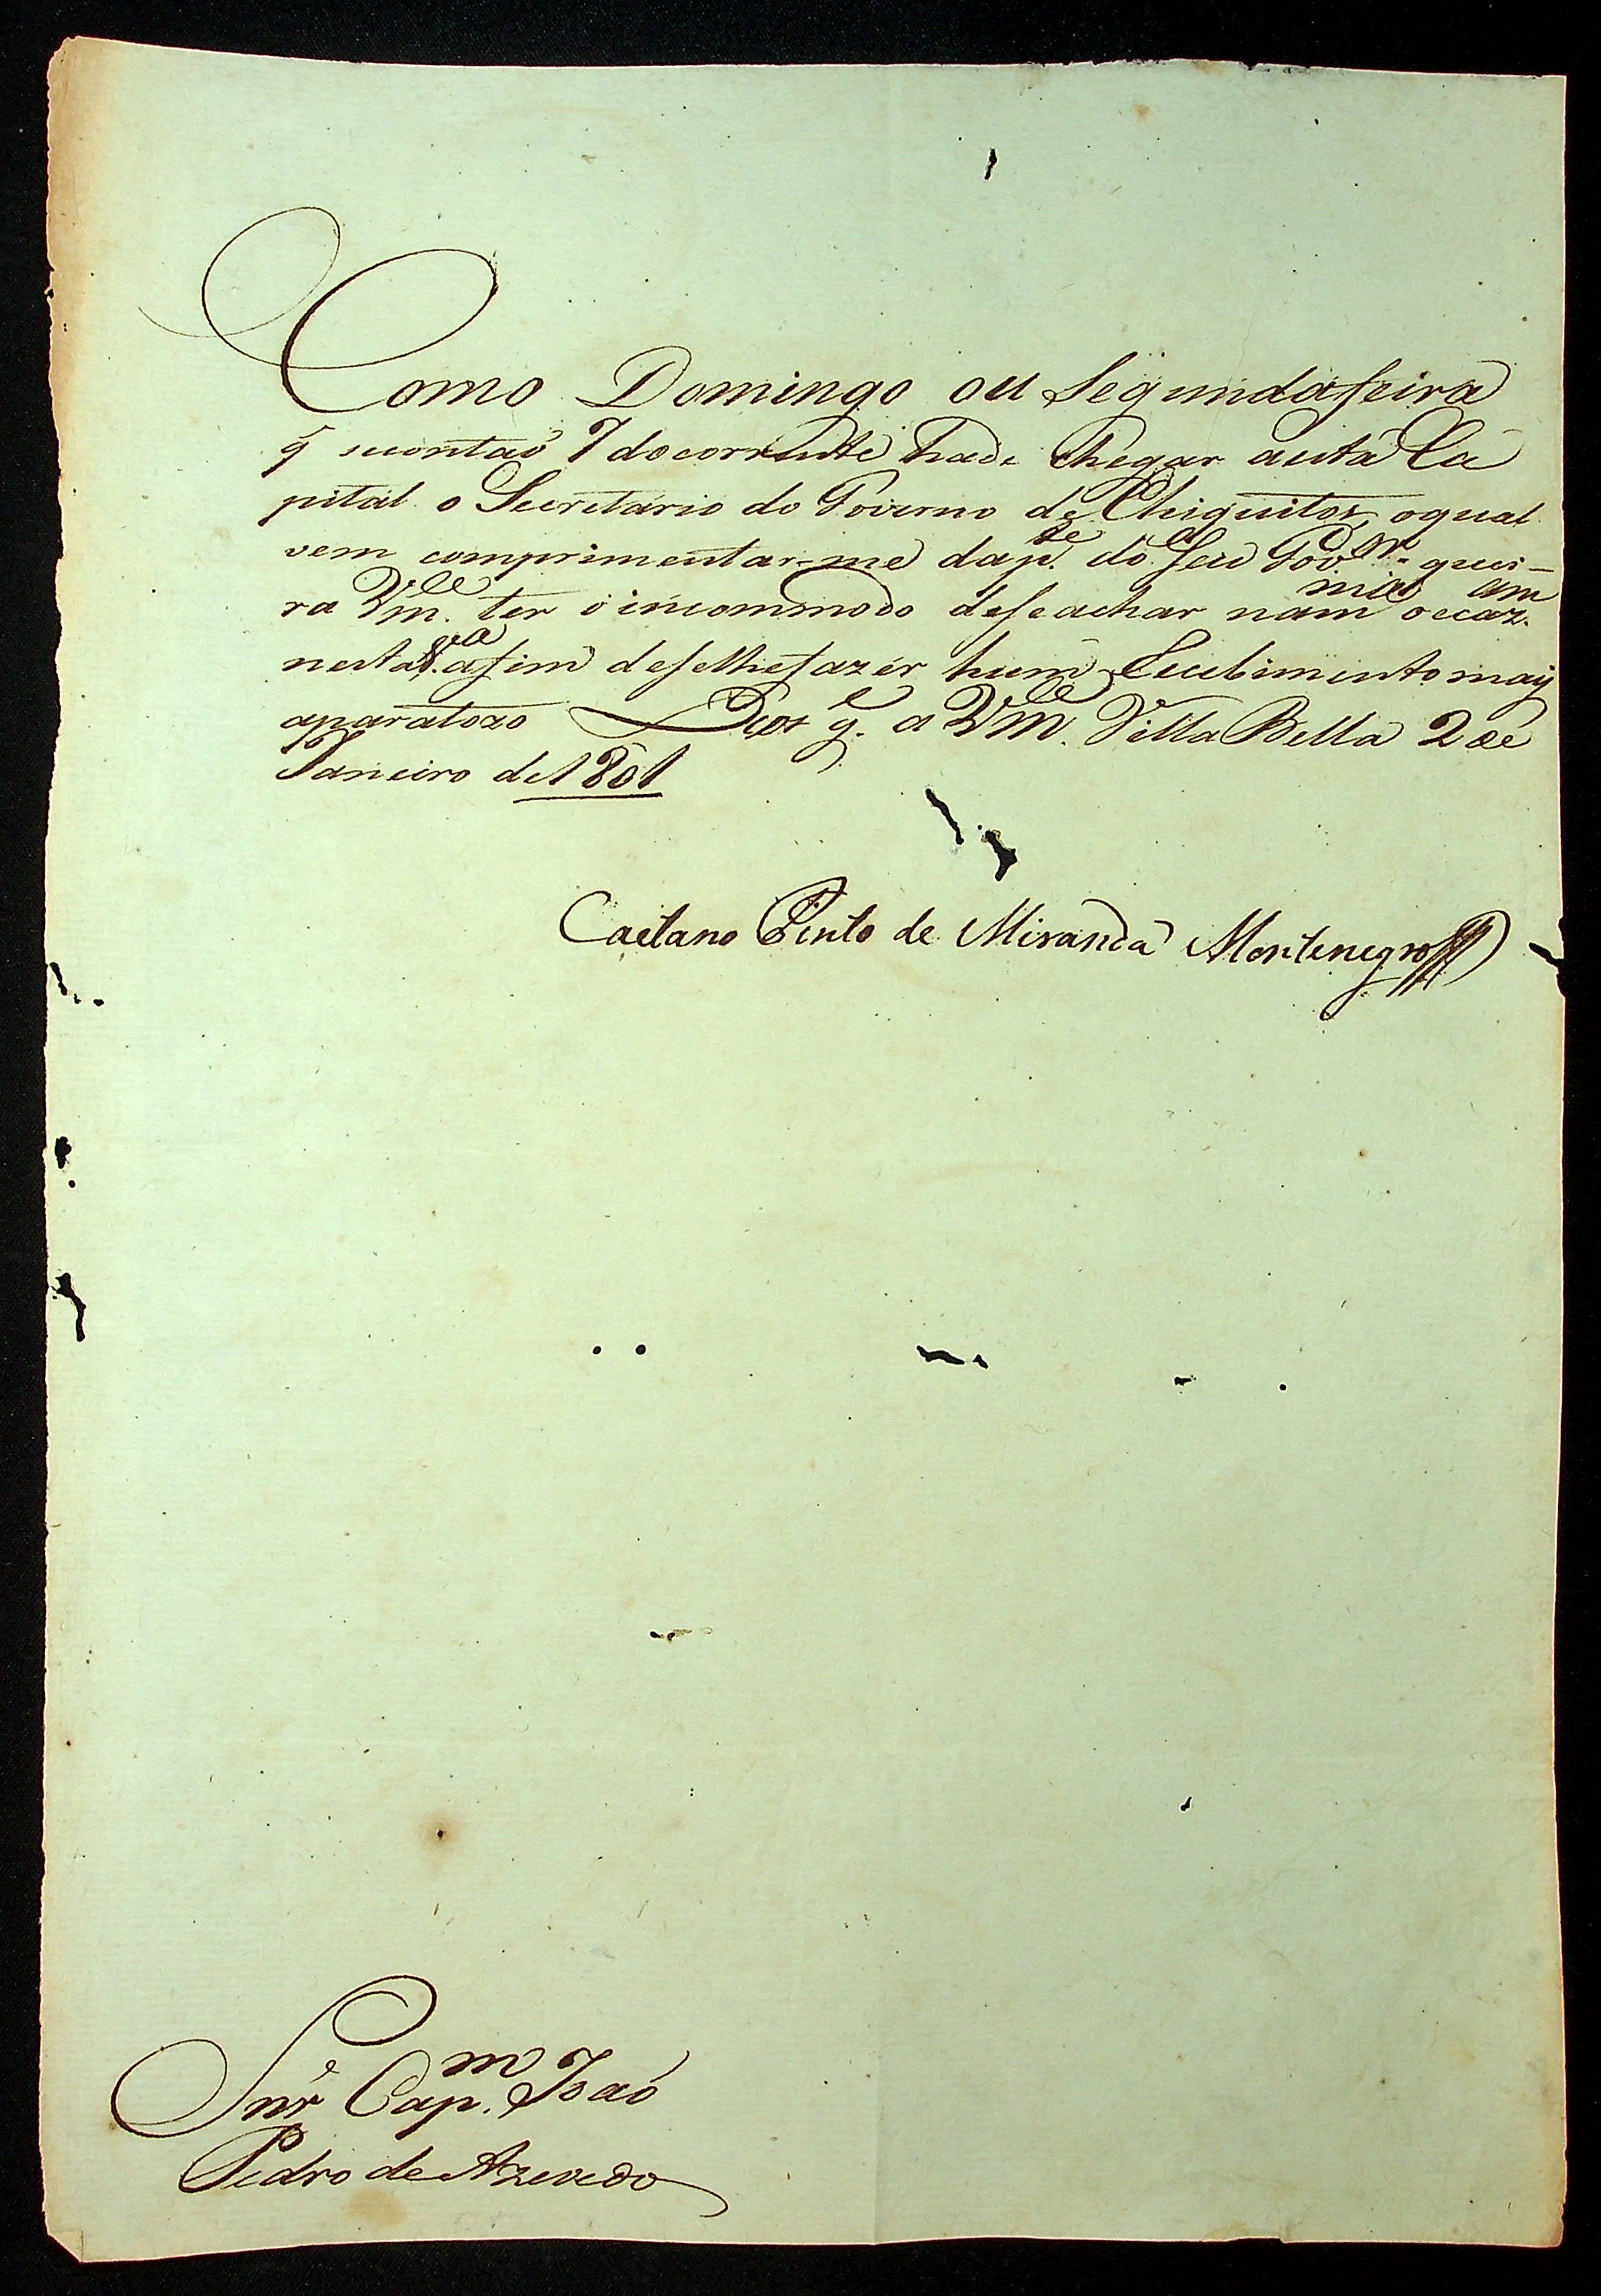 Como Domingo ou Segundafeira
q̃ secontaõ 7 docorrente hade chegar aesta Ca
pital o Secretario do Governo de Chiquitos, oqual
vem comprimentar-me dap.te do seu Gov.or quei-
ra Vm.ce ter o incommodo deseachar nam.ma occaz.am
nesta V.a afim deselhefazer hum Recebimento mais
aparatozo Deos g.e a Vm.ce Villa Bella 2 de
Janeiro de 1801
Caetano Pinto de Miranda Montenegro
Snr̃ Cap.m Joaõ
Pedro de Azevedo